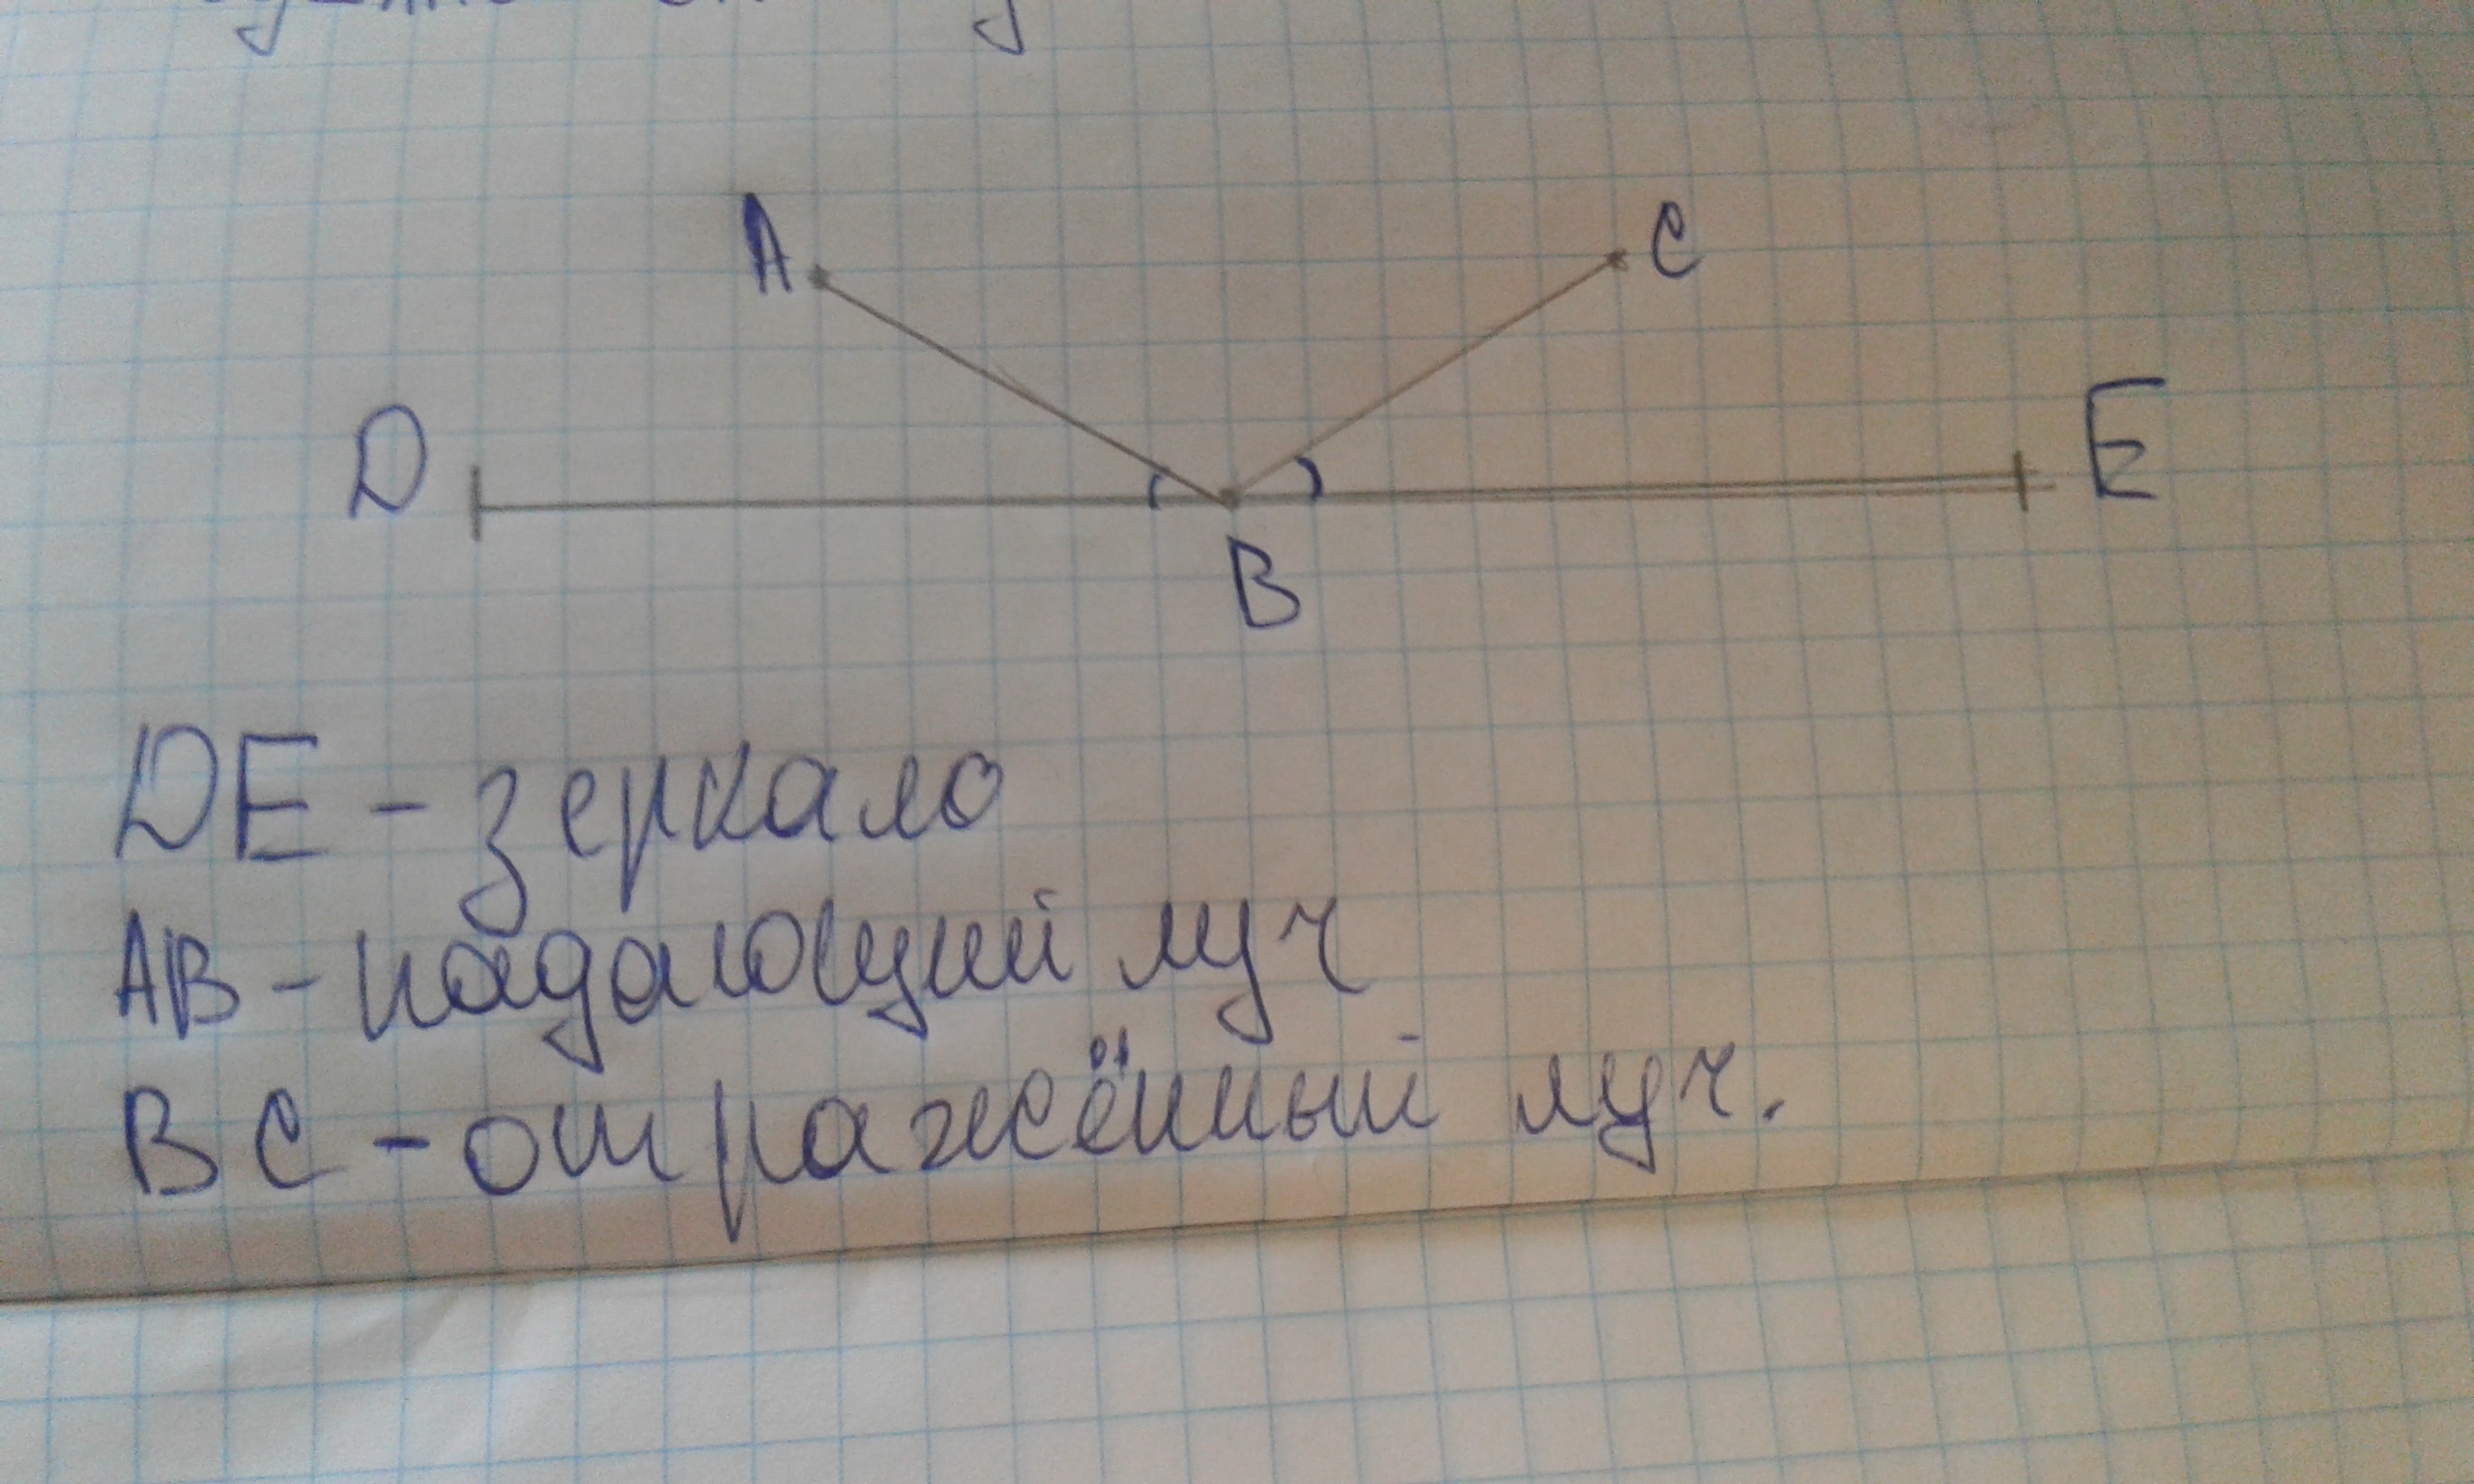 A
C
D
E
B
DE - зеркало
AB - падающий луч
BC - отражённый луч.